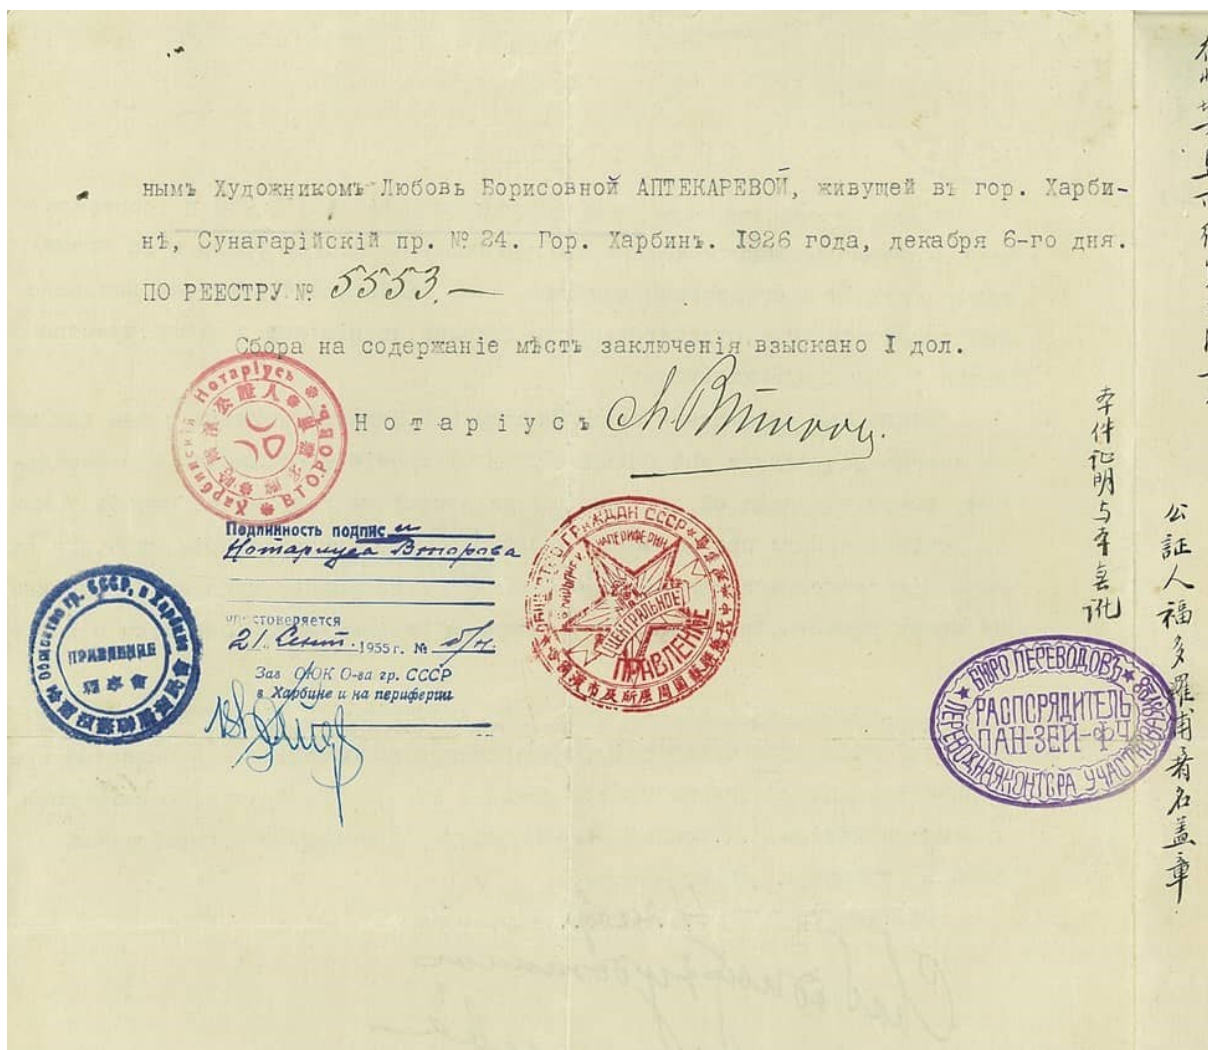 нымъ Художникомъ Любовь Борисовной АПТЕКАРЕВОЙ, живущей въ гор. Харби-
нѣ, Сунагарійскій пр. № 24. Гор. Харбинъ. 1926 года, декабря 6-го дня.
ПО РЕЕСТРУ № 5553.—
Сбора на содержаніе мѣстъ заключенія взыскано I дол.
Нотаріусъ
Харбинскій Нотаріусъ
ВТОРОВЪ
公證人
Подлинность подписи
Нотариуса Второва
удостоверяется
21. Сент. 1955 г. № б/н.
Зав ОЮК О-ва гр. СССР
в Харбине и на периферии
Общество гр. СССР, в Харбине
ПРАВЛЕНИЕ
理事會
ОБЩЕСТВО ГРАЖДАН СССР
ЦЕНТРАЛЬНОЕ
ПРАВЛЕНИЕ
БЮРО ПЕРЕВОДОВЪ
РАСПОРЯДИТЕЛЬ
ПАН-ЗЕЙ-ФУ
ПЕРЕВОДНАЯ КОНТОРА
本件证明与本会讹
公証人福多羅甫著名盖章